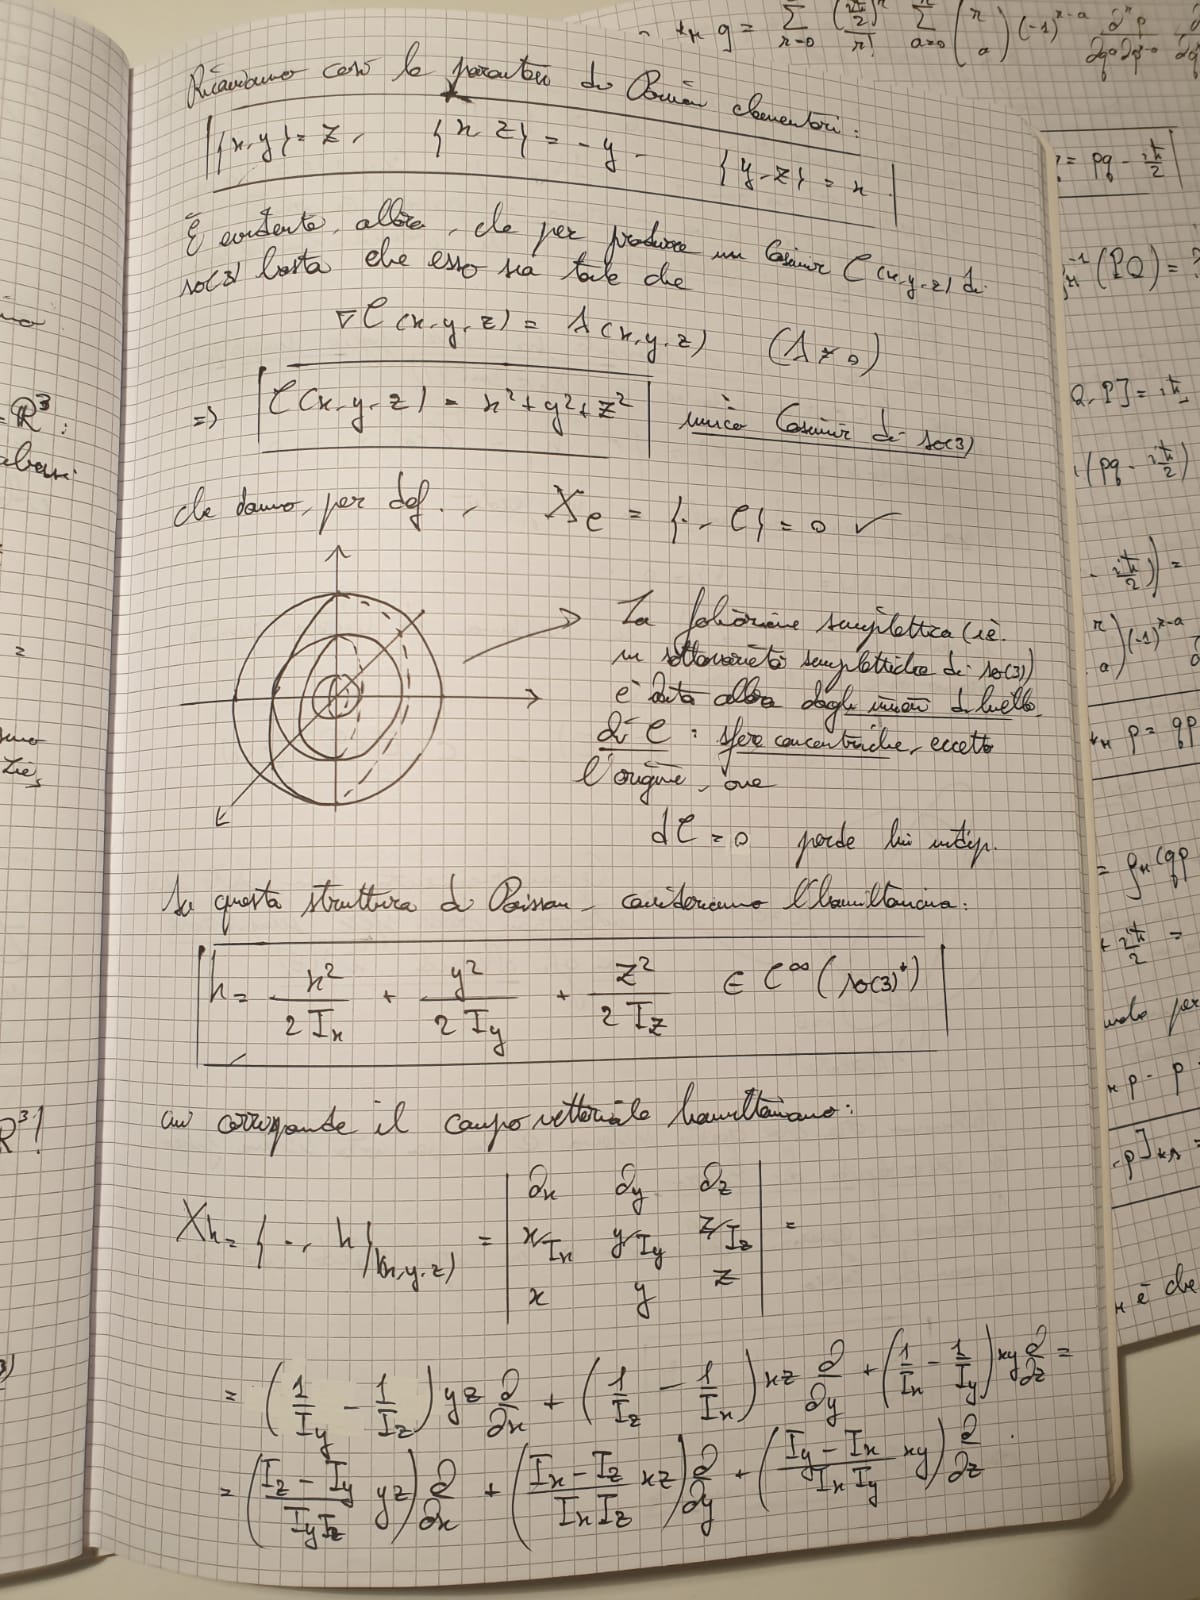 Ricaviamo così le parentesi di Poisson elementari:
{x,y} = z, {x,z} = -y, {y,z} = x.
È evidente, allora, che per produrre un Casimir C(x,y,z) di
so(3) basta che esso sia tale che
∇C(x,y,z) = λ(x,y,z) (λ≠0)
=> C(x,y,z) = x²+y²+z² unico Casimir di so(3)
che danno, per def., X_C = {·, C} = 0 ✓
La foliazione simplettica (i.e.
in sottovarietà simplettiche di so(3))
è data allora dagli insiemi di livello
di C : sfere concentriche, eccetto
l'origine, ove
dC = 0 perde l'indip.
Su questa struttura di Poisson, consideriamo l'hamiltoniana:
h = x²/2I_x + y²/2I_y + z²/2I_z ∈ C^∞(so(3)*)
cui corrisponde il campo vettoriale hamiltoniano:
X_h = {·, h}|(x,y,z) = | ∂x ∂y ∂z | =
x/I_x y/I_y z/I_z
x y z
= (1/I_y - 1/I_z) yz ∂/∂x + (1/I_z - 1/I_x) xz ∂/∂y + (1/I_x - 1/I_y) xy ∂/∂z =
= (I_z - I_y / I_y I_z yz) ∂/∂x + (I_x - I_z / I_x I_z xz) ∂/∂y + (I_y - I_x / I_x I_y xy) ∂/∂z .
= R³ :
R³!
= pq - iħ/2
(PQ) =
Q, P] = iħ
(pq - iħ/2)
- iħ/2) =
(-1)^(r-a)
p = qp
(qp
+ iħ/2 =
p - p
è che